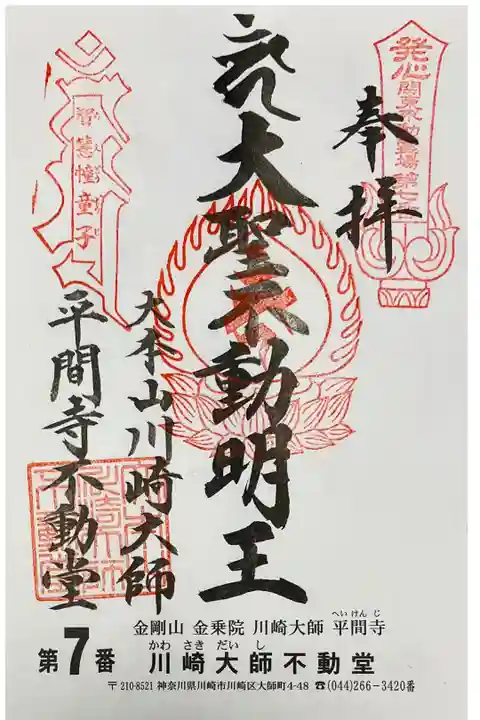 発心 関東不動霊場 第七番
奉拝
大聖不動明王
大本山川崎大師
平間寺不動堂
智慧幢童子
金剛山 金乗院 川崎大師 平間寺
へいけんじ
第7番
かわさきだいし
川崎大師不動堂
〒210-8521 神奈川県川崎市川崎区大師町4-48 ☎(044)266-3420番